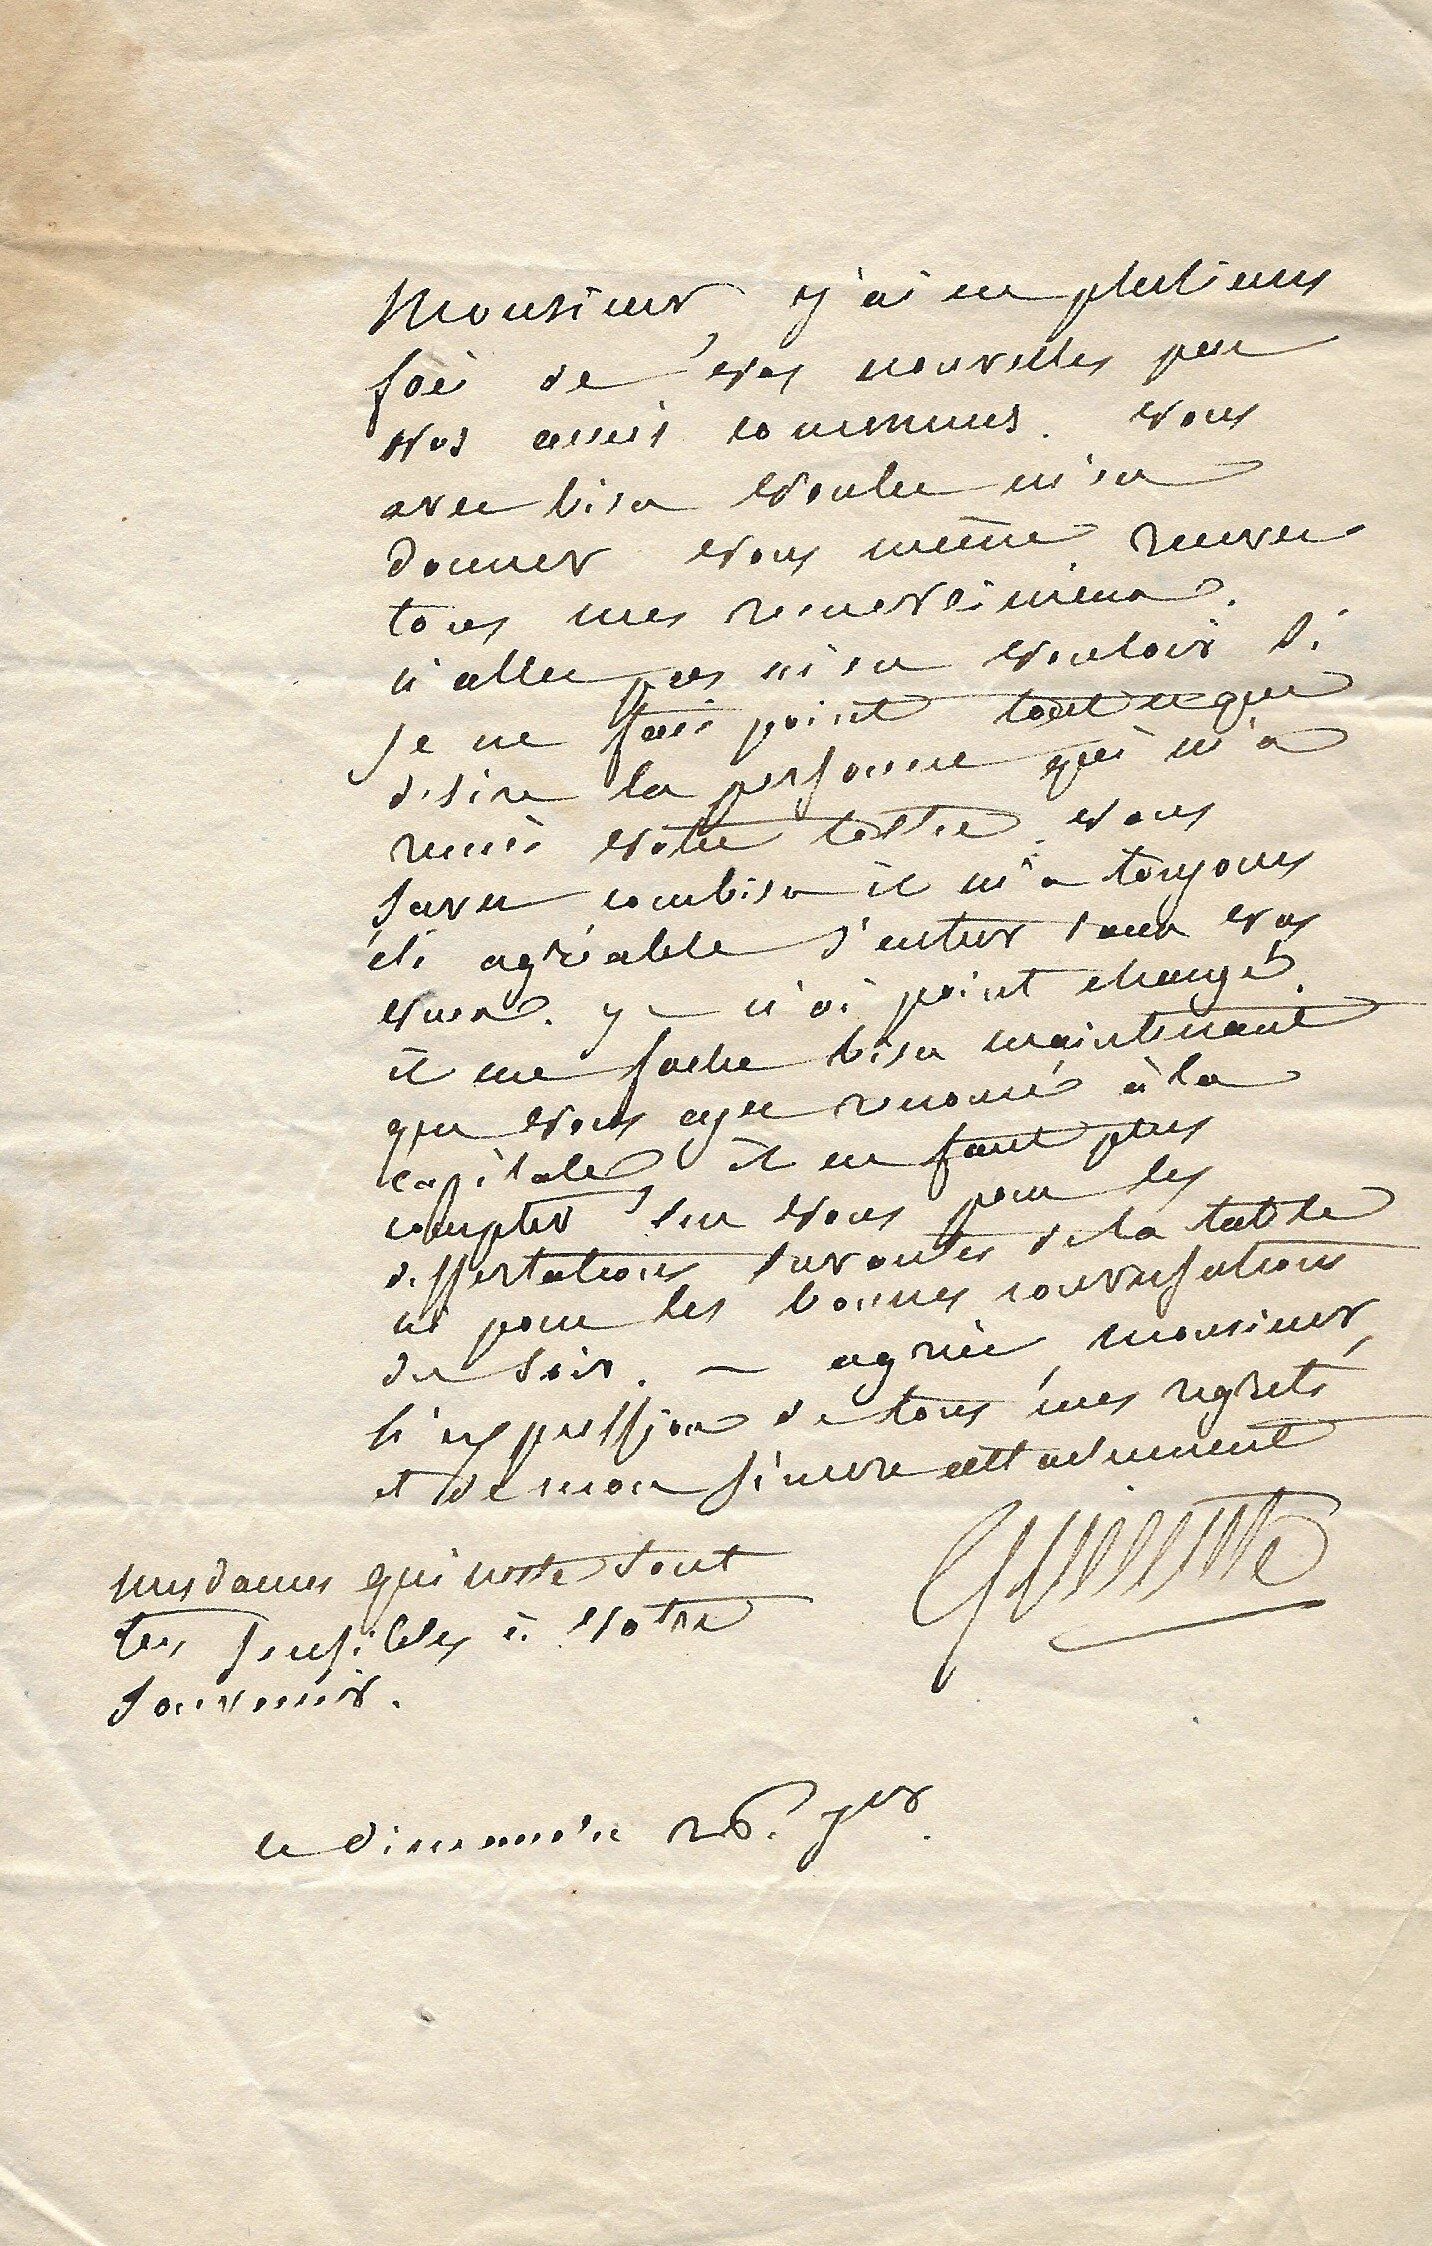 Monsieur, j'ai eu plusieurs
fois de vos nouvelles par
nos amis communs. vous
avez bien voulu m'en
donner vous même recevez
tous mes remerciemens.
n'allez pas m'en vouloir si
je ne fais point tout ce que
desire la personne qui m'a
remis votre lettre. vous
savez combien il m'a toujours
été agréable d'entrer dans vos
vues. je n'ai point changé.
il me fache bien maintenant
que vous ayez renoncé à la
capitale, il ne faut plus
compter sur vous pour les
dissertations savantes de la table
ni pour les bonnes conversations
du soir. — agréez, monsieur,
l'expression de tous mes regrets
et de mon sincere attachement
Quinette
mesdames quinette sont
très sensibles à votre
souvenir.
ce dimanche 26. 7er.